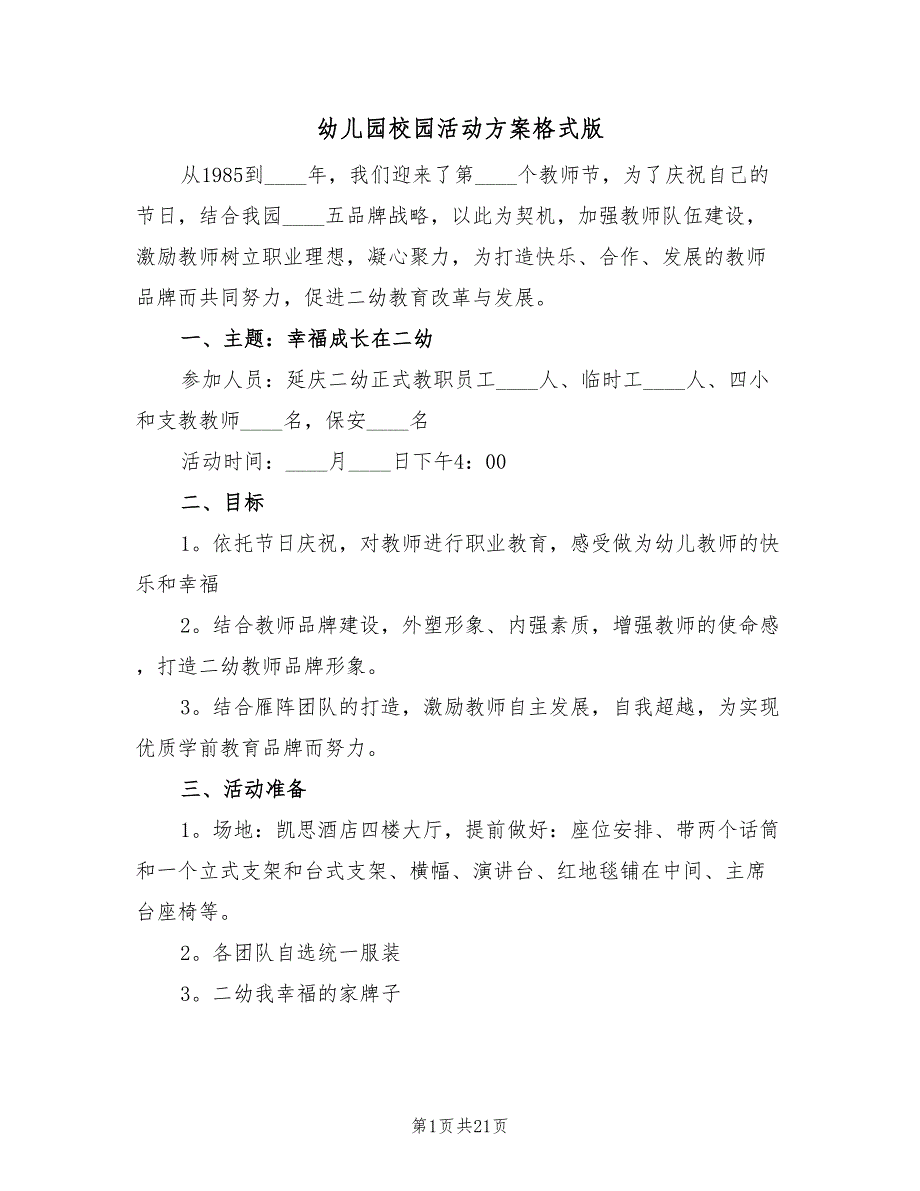 幼儿园校园活动方案格式版
从1985到____年，我们迎来了第____个教师节，为了庆祝自己的
节日，结合我园____五品牌战略，以此为契机，加强教师队伍建设，
激励教师树立职业理想，凝心聚力，为打造快乐、合作、发展的教师
品牌而共同努力，促进二幼教育改革与发展。
一、主题：幸福成长在二幼
参加人员：延庆二幼正式教职员工____人、临时工____人、四小
和支教教师____名，保安____名
活动时间：____月____日下午4：00
二、目标
1。依托节日庆祝，对教师进行职业教育，感受做为幼儿教师的快
乐和幸福
2。结合教师品牌建设，外塑形象、内强素质，增强教师的使命感
，打造二幼教师品牌形象。
3。结合雁阵团队的打造，激励教师自主发展，自我超越，为实现
优质学前教育品牌而努力。
三、活动准备
1。场地：凯思酒店四楼大厅，提前做好：座位安排、带两个话筒
和一个立式支架和台式支架、横幅、演讲台、红地毯铺在中间、主席
台座椅等。
2。各团队自选统一服装
3。二幼我幸福的家牌子
第1页共21页